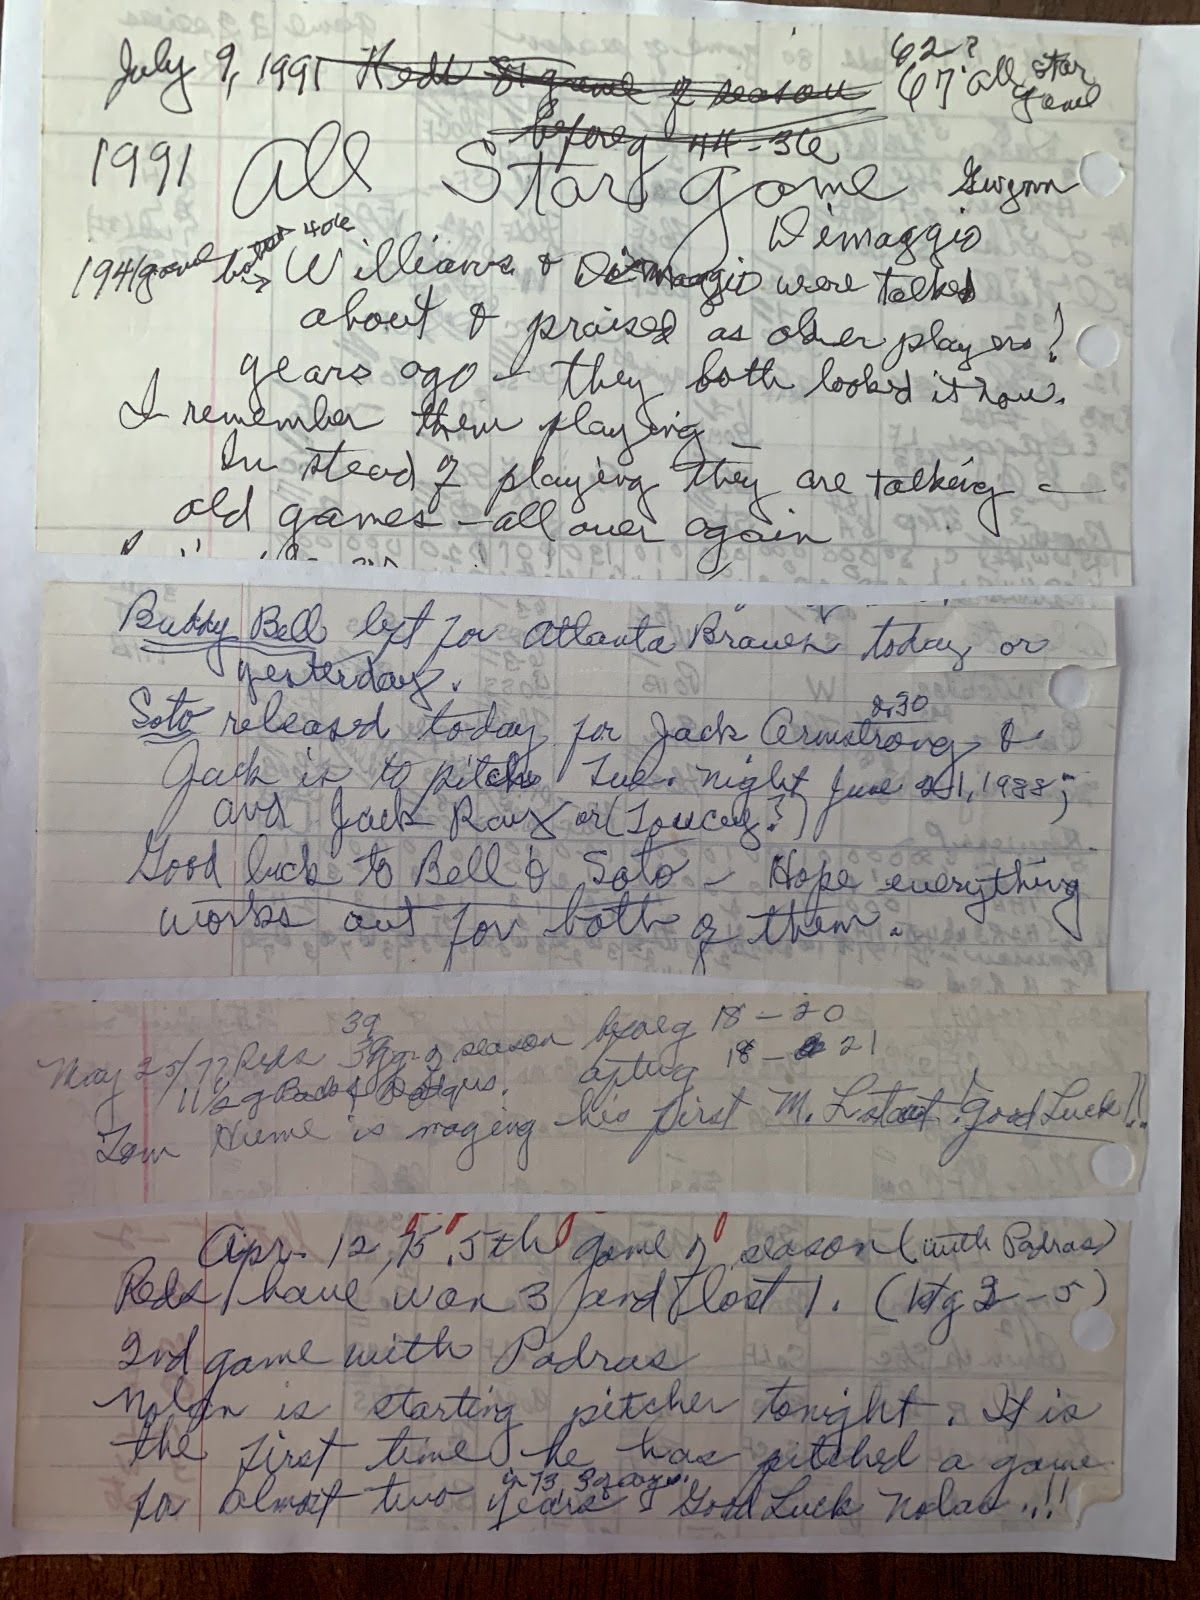 July 9, 1991 Reds 81 game of season 62? 67 All Star Game
before 44-36
1991 All Star Game Gwynn
Dimaggio
1941 good batter 406 Williams & Dimaggio were talked
about & praised as older players!
years ago - they both looked it now.
I remember them playing -
In stead of playing they are talking -
old games - all over again
Buddy Bell left for Atlanta Braves today or
yesterday.
2.30
Soto released today for Jack Armstrong &
Jack is to pitch Tue. night June 21, 1988;
and Jack
Good luck to Bell & Soto - Hope everything
works out for both of them.
39
May 25/77 Reds 39 g of season before g 18-20
11 1/2 g Back of Dodgers. after g 18-21
Tom Hume is making his first M. L start! Good Luck!!
Apr. 12, 75. 5th game of season (with Padras)
Reds have won 3 and lost 1. (
2nd game with Padras
Nolan is starting pitcher tonight. It is
the first time he has pitched a game
in 73
for almost two years - Good Luck Nolan..!!